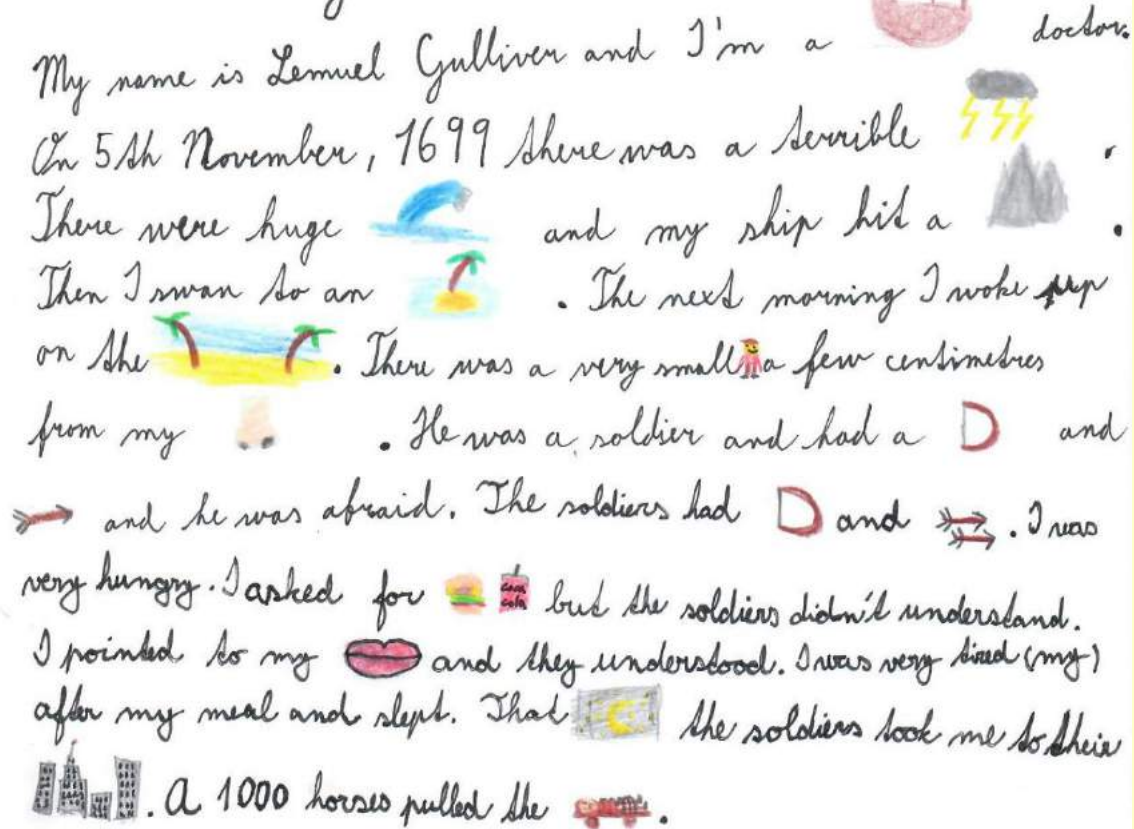 My name is Lemuel Gulliver and I'm a doctor.
On 5th November, 1699 there was a terrible .
There were huge and my ship hit a .
Then I swan to an . The next morning I woke up
on the . There was a very small a few centimetres
from my . He was a soldier and had a and
and he was afraid. The soldiers had and . I was
very hungry. I asked for coca cola but the soldiers didn't understand.
I pointed to my and they understood. I was very tired (my)
after my meal and slept. That the soldiers took me to their
. A 1000 horses pulled the .